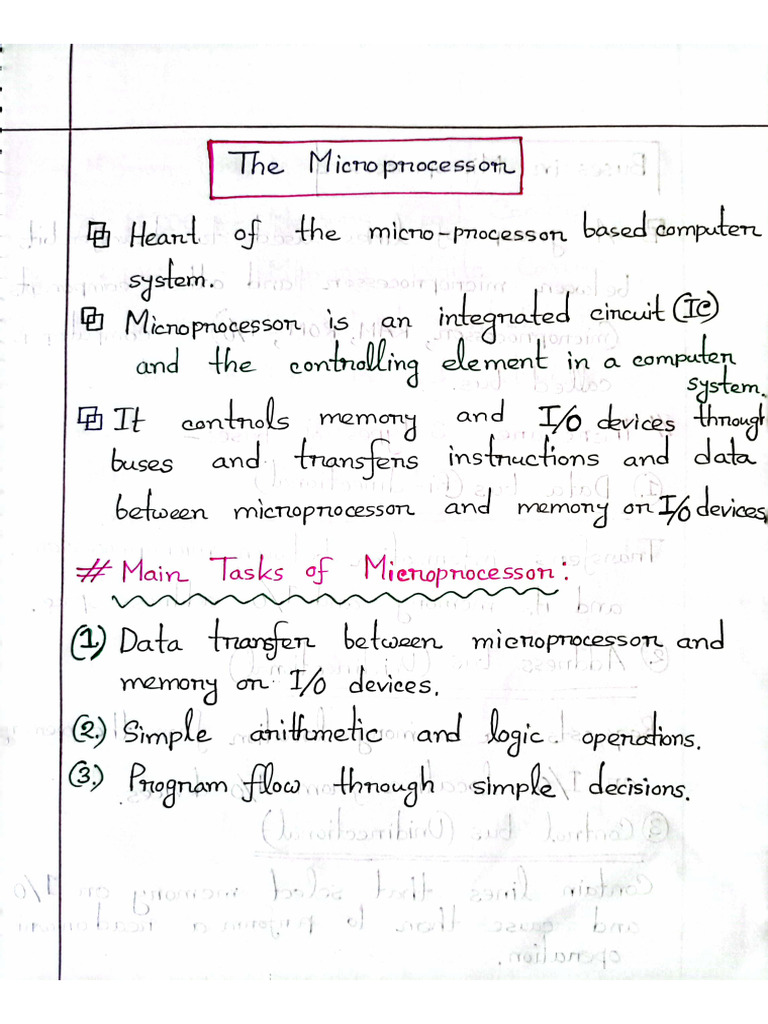 The Microprocessor
Heart of the micro-processor based computer
system.
Microprocessor is an integrated circuit (IC)
and the controlling element in a computer
system.
It controls memory and I/O devices through
buses and transfers instructions and data
between microprocessor and memory or I/O devices
# Main Tasks of Microprocessor:
(1) Data transfer between microprocessor and
memory or I/O devices.
(2.) Simple arithmetic and logic operations.
(3.) Program flow through simple decisions.